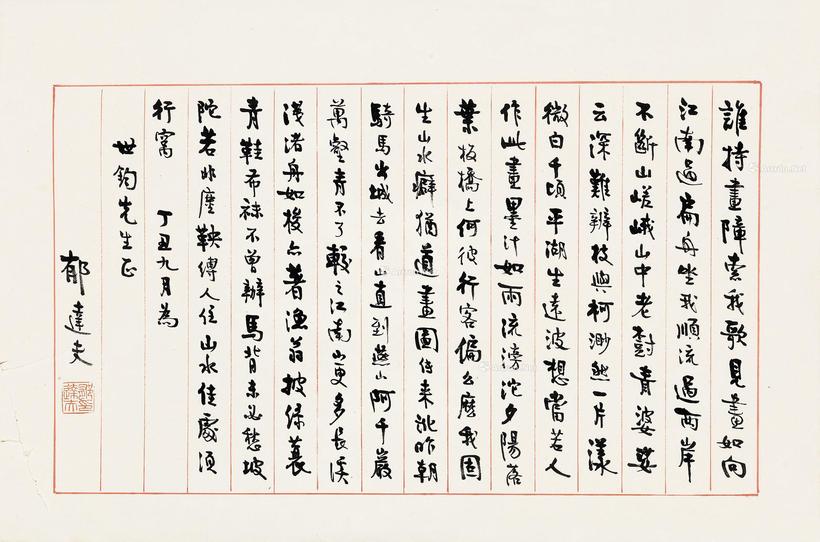 誰持畫障索我歌見畫如向
江南過扁舟坐我順流過兩岸
不斷山嵯峨山中老樹青婆娑
云深難辨枝與柯渺然一片漾
微白千頃平湖生遠波想當若人
作此畫墨汁如雨流滂沱夕陽落
葉板橋上何彼行客偏么麼我固
生山水癖猶道畫圖傳来訛昨朝
騎馬出城去看山直到燕山阿千巖
萬壑青不了較之江南山更多長溪
淺渚舟如梭亦著漁翁披綠蓑
青鞋布袜不曾辦馬背未必愁坡
陀若非塵鞅縛人住山水佳處須
行窩 丁丑九月為
世鈞先生正
郁達夫